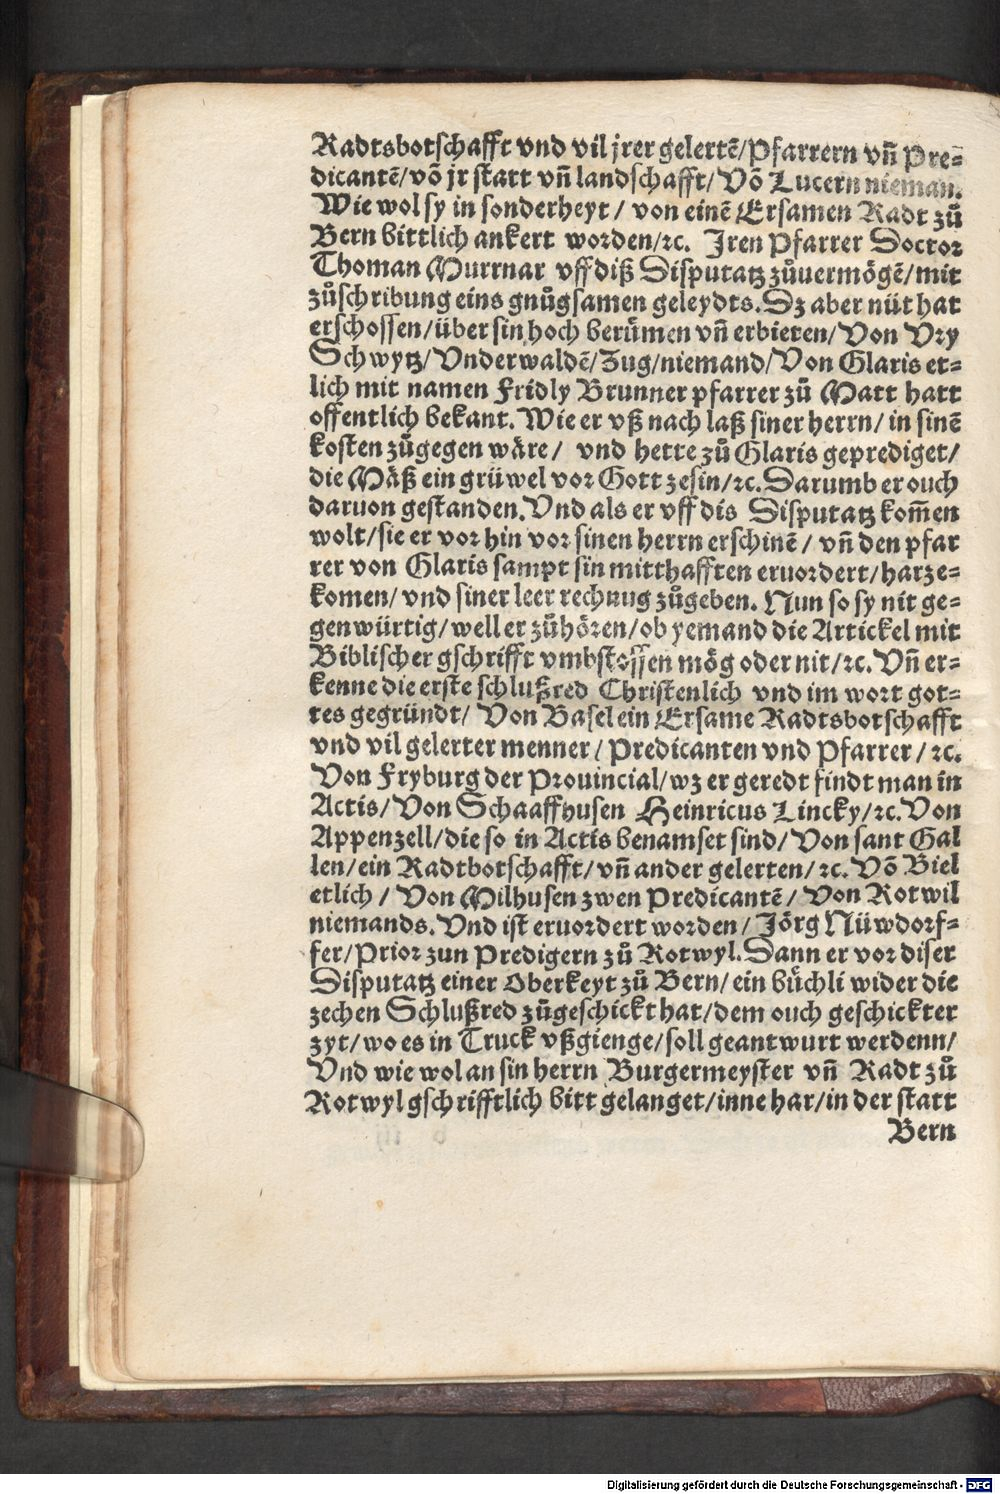 Radtsbotschafft vnd vil jrer gelertẽ/Pfarrern vñ Pre⸗
dicantẽ/võ jr statt vñ landschafft/Võ Lucern nieman.
Wie wol sy in sonderheyt/ von einẽ Ersamen Radt zů
Bern bittlich ankert worden/ꝛc. Jren Pfarrer Doctor
Thoman Murrnar vff diß Disputatz zůvermögẽ/mit
zůschribung eins gnůgsamen geleydts. Dz aber nüt hat
erschossen/über sin hoch berůmen vñ erbieten/Von Vry
Schwytz/Vnderwaldẽ/Zug/niemand/Von Glaris et⸗
lich mit namen Fridly Brunner pfarrer zů Matt hatt
offentlich bekant. Wie er vß nach laß siner herrn/ in sinẽ
kosten zůgegen wäre/ vnd hette zů Glaris geprediget/
die Mäß ein grüwel vor Gott zesin/ꝛc. Darumb er ouch
daruon gestanden. Vnd als er vff dis Disputatz kom̃en
wolt/sie er vor hin vor sinen herrn erschinẽ/ vñ den pfar
rer von Glaris sampt sin mitthafften eruordert/harze⸗
komen/ vnd siner leer rechnug zůgeben. Nun so sy nit ge⸗
genwürtig/well er zůhören/ob yemand die Artickel mit
Biblischer gschrifft vmbstossen mög oder nit/ꝛc. Vñ er⸗
kenne die erste schlußred Christenlich vnd im wort got⸗
tes gegründt/ Von Basel ein Ersame Radtsbotschafft
vnd vil gelerter menner/Predicanten vnd Pfarrer/ꝛc.
Von Fryburg der Prouincial/wz er geredt findt man in
Actis/Von Schaaffhusen Heinricus Lincky/ꝛc. Von
Appenzell/die so in Actis benamset sind/Von sant Gal
len/ein Radtbotschafft/vñ ander gelerten/ꝛc. Võ Biel
etlich/ Von Milhusen zwen Predicantẽ/ Von Rotwil
niemands. Vnd ist eruordert worden/ Jörg Nüwdorf⸗
fer/Prior zun Predigern zů Rotwyl. Dann er vor diser
Disputatz einer Oberkeyt zů Bern/ein bůchli wider die
zechen Schlußred zůgeschickt hat/dem ouch geschickter
zyt/wo es in Truck vßgienge/soll geantwurt werdenn/
Vnd wie wol an sin herrn Burgermeyster vñ Radt zů
Rotwyl gschrifftlich bitt gelanget/inne har/in der statt
Bern
Digitalisierung gefördert durch die Deutsche Forschungsgemeinschaft - DFG